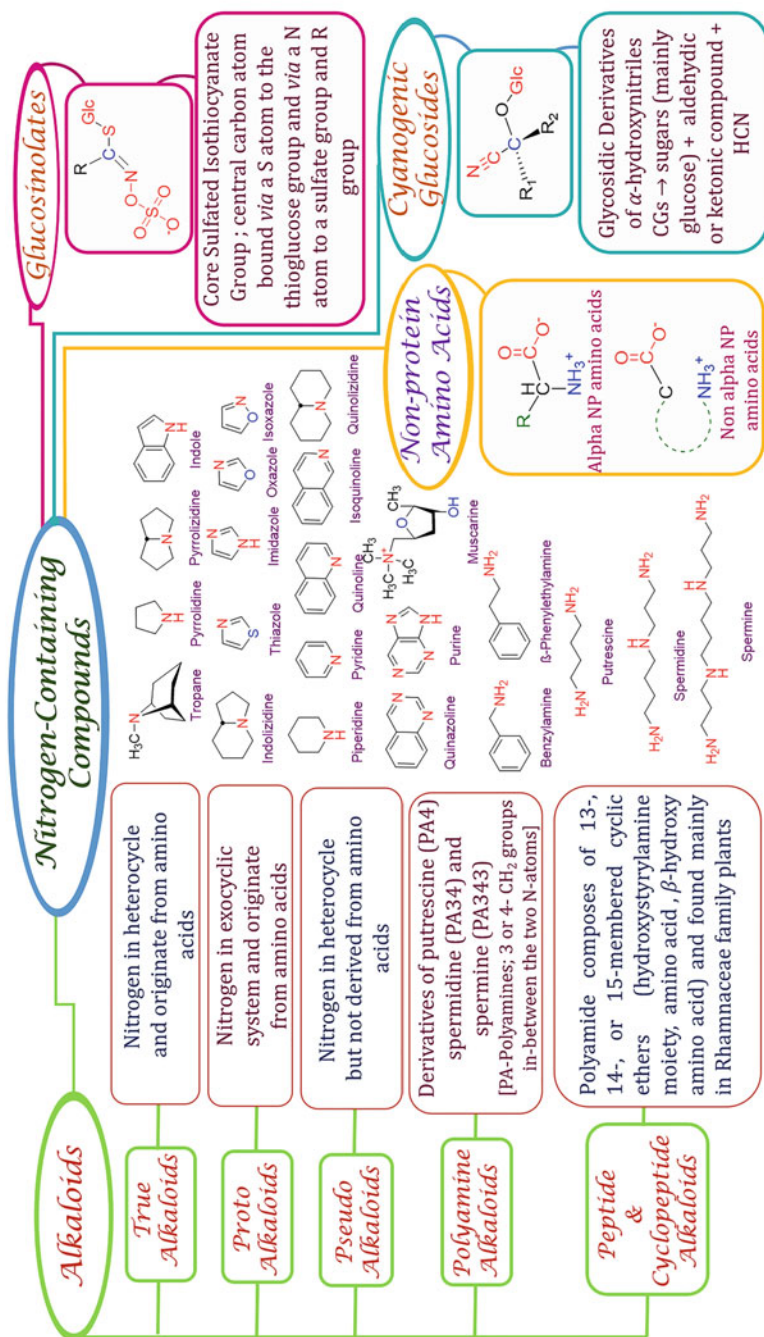 Nitrogen-Containing
Compounds
Alkaloids
True
Alkaloids
Nitrogen in heterocycle
and originate from amino
acids
Proto
Alkaloids
Nitrogen in exocyclic
system and originate
from amino acids
Pseudo
Alkaloids
Nitrogen in heterocycle
but not derived from amino
acids
Polyamine
Alkaloids
Derivatives of putrescine (PA4)
spermidine (PA34) and
spermine (PA343)
[PA-Polyamines; 3 or 4- CH₂ groups
in-between the two N-atoms]
Peptide
&
Cyclopeptide
Alkaloids
Polyamide composes of 13-,
14-, or 15-membered cyclic
ethers (hydroxystyrylamine
moiety, amino acid , β-hydroxy
amino acid) and found mainly
in Rhamnaceae family plants
H₃C
N
Tropane
N
H
Pyrrolidine
N
Pyrrolizidine
N
H
Indole
N
Indolizidine
N
S
Thiazole
N
NH
Imidazole
N
O
Oxazole
N
O
Isoxazole
N
H
Piperidine
N
Pyridine
N
Quinoline
N
Isoquinoline
N
Quinolizidine
N
N
Quinazoline
N
N
N
N
H
Purine
CH₃
H₃C
N⁺
CH₃
O
CH₃
OH
Muscarine
NH₂
Benzylamine
NH₂
ß-Phenylethylamine
H₂N
NH₂
Putrescine
H₂N
H
N
NH₂
Spermidine
H₂N
N
H
H
N
NH₂
Spermine
Glucosinolates
R
C
S
Glc
N
O
O
S
O
O⁻
Core Sulfated Isothiocyanate
Group ; central carbon atom
bound via a S atom to the
thioglucose group and via a N
atom to a sulfate group and R
group
Cyanogenic
Glucosides
N
C
C
O
Glc
R₁
R₂
Glycosidic Derivatives
of α-hydroxynitriles
CGs → sugars (mainly
glucose) + aldehydic
or ketonic compound +
HCN
Non-protein
Amino Acids
R
H
C
C
O
O⁻
NH₃⁺
Alpha NP amino acids
C
C
O
O⁻
NH₃⁺
Non alpha NP
amino acids